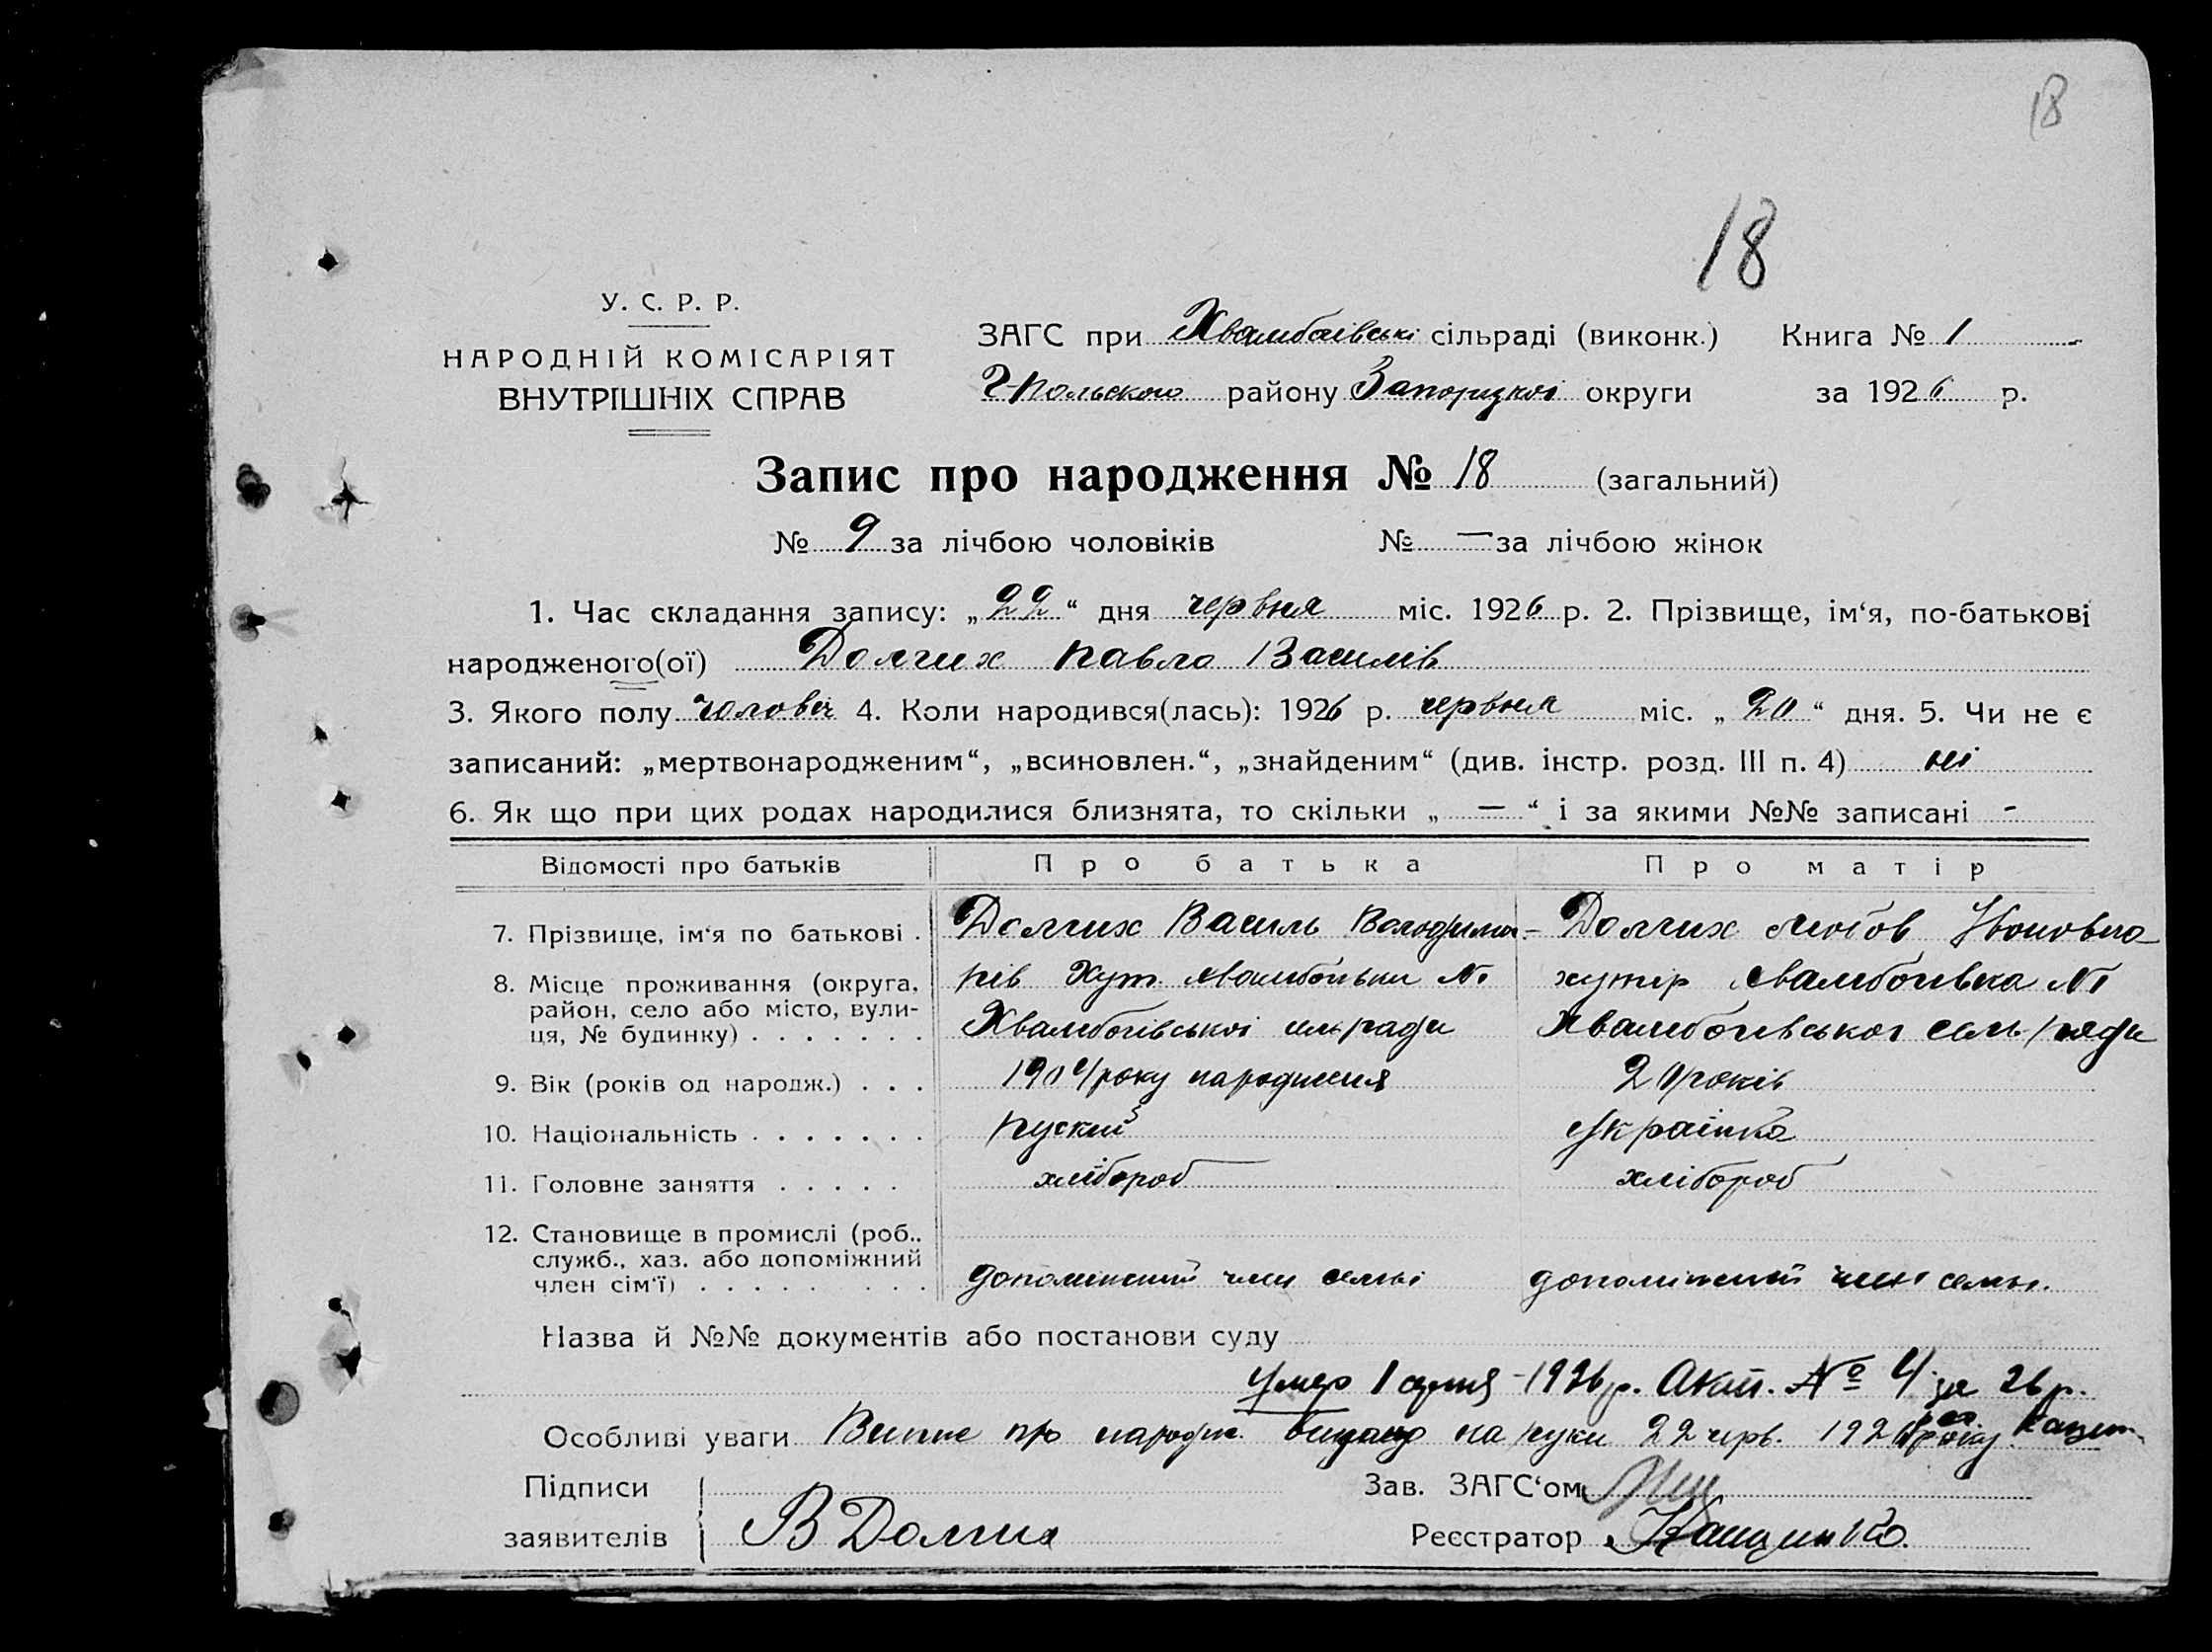 18
18
У. С. Р. Р.
НАРОДНІЙ КОМІСАРІЯТ
ВНУТРІШНІХ СПРАВ
ЗАГС при Хвалибоівські сільраді (виконк.) Книга № 1
Г-Польского району Запоризкоі округи за 1926 р.
Запис про народження № 18 (загальний)
№ 9 за лічбою чоловіків № — за лічбою жінок
1. Час складання запису: „22“ дня червня міс. 1926 р. 2. Прізвище, ім‘я, по-батькові
народженого(ої) Долгих Павло Василів
3. Якого полу чоловіч 4. Коли народився(лась): 1926 р. червня міс. „20“ дня. 5. Чи не є
записаний: „мертвонародженим“, „всиновлен.“, „знайденим“ (див. інстр. розд. III п. 4) ні
6. Як що при цих родах народилися близнята, то скільки „ — “ і за якими №№ записані -
Відомості про батьків Про батька Про матір
7. Прізвище, ім‘я по батькові . Долгих Василь Володими- Долгих Любов Івановна
8. Місце проживання (округа, рів Хут. №1 хутір Хвалибоівка №1
район, село або місто, вули- Хвалибоівськоі сільради Хвалибоівськоі сель/ради
ця, № будинку) . . . . . . .
9. Вік (років од народж.) . . . 1904/року народження 20 років
10. Національність . . . . . . . руский Украінка
11. Головне заняття . . . . . хлібороб хлібороб
12. Становище в промислі (роб.,
служб., хаз. або допоміжний
член сім‘ї) . . . . . . . . допоміжний член семьі допоміжний член семьі.
Назва й №№ документів або постанови суду
умер 1 серпня - 1926 р. Акт. № 4 за 26 р.
Особливі уваги Випис про народж. видано на руки 22 черв. 1926 року.
Підписи Зав. ЗАГС‘ом
заявителів В Долгих Реєстратор